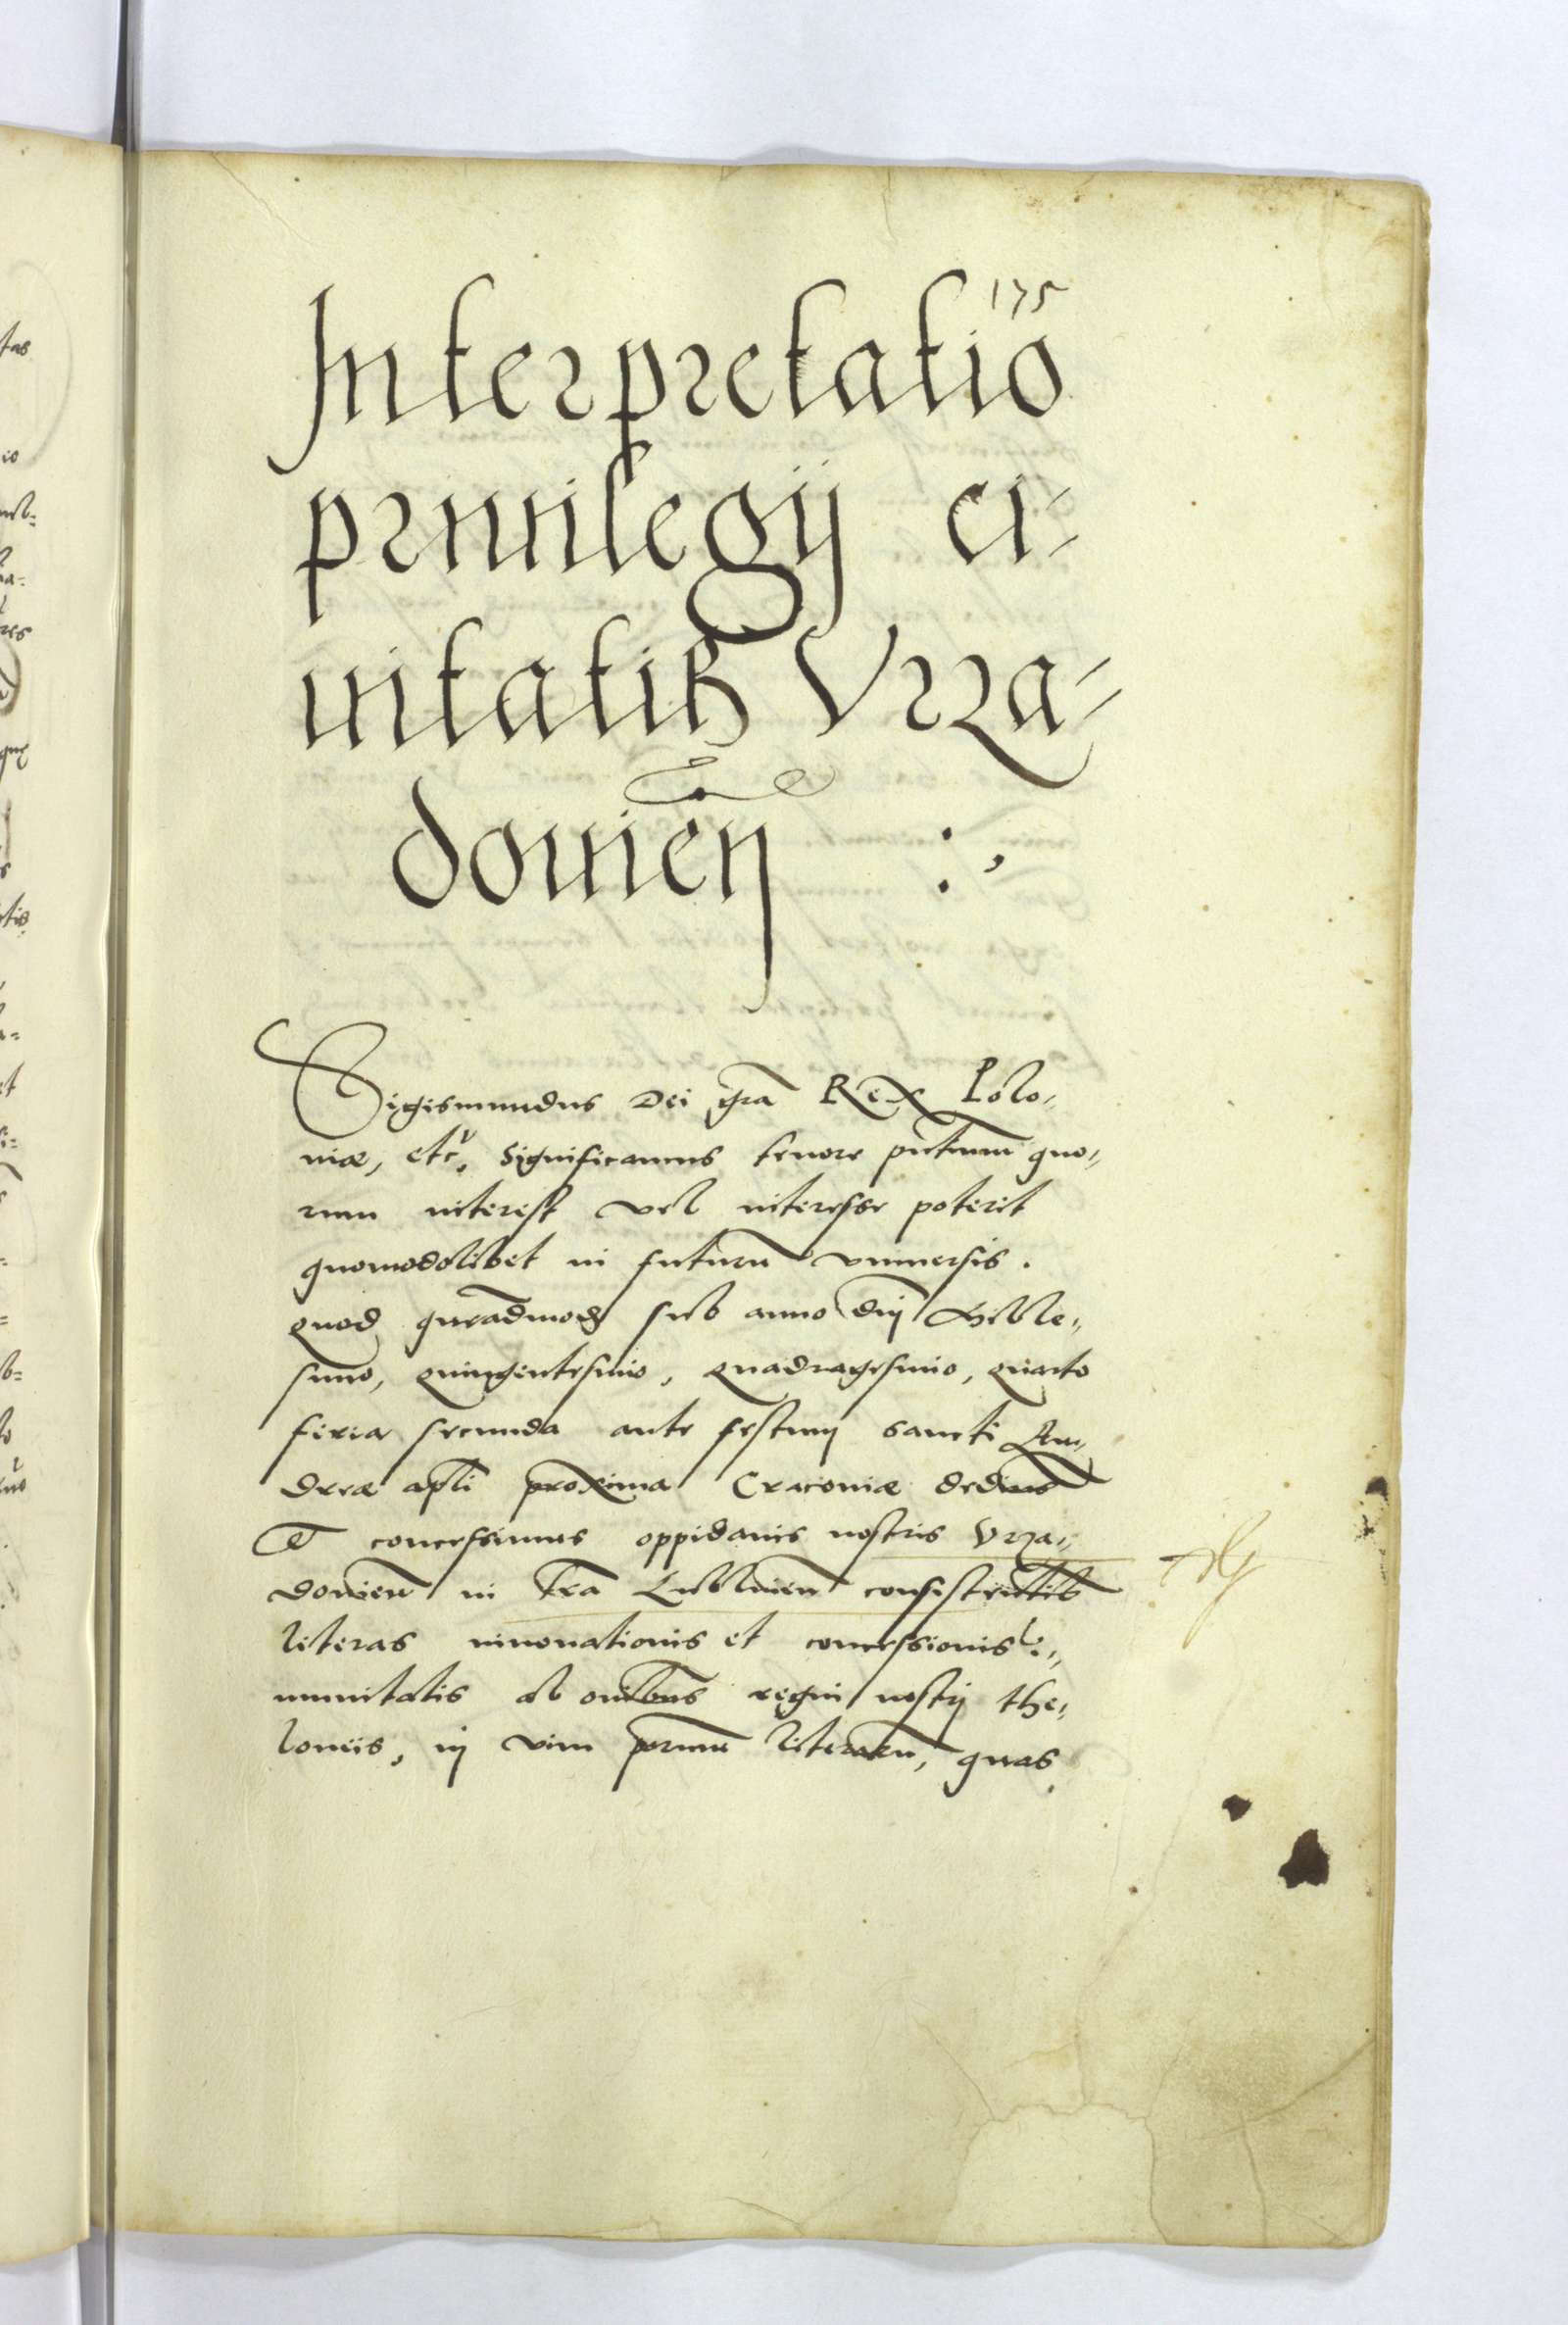 175
Interpretatio
priuilegij ci-
uitatis Vrza-
douień :,
Sigismundus Dei gra Rex Polo-
niæ, etc. significamus tenore pntium quo-
rum interest vel interesse poterit
quomodolibet in futuru vniuersis.
quod quęadmod sub anno dnj Mille-
simo, quingentesimo, quadragesimo, quarto
feria secunda ante festum sancti An-
dreæ apli proxima Cracoviæ dedimus
Et concessimus oppidanis nostris Vrza-
dovien in tra Lublinen consistentib
literas innovationis et concessionis i-
munitatis ab omibus regni nostrj the-
loneis, in vim primu literaru, quas